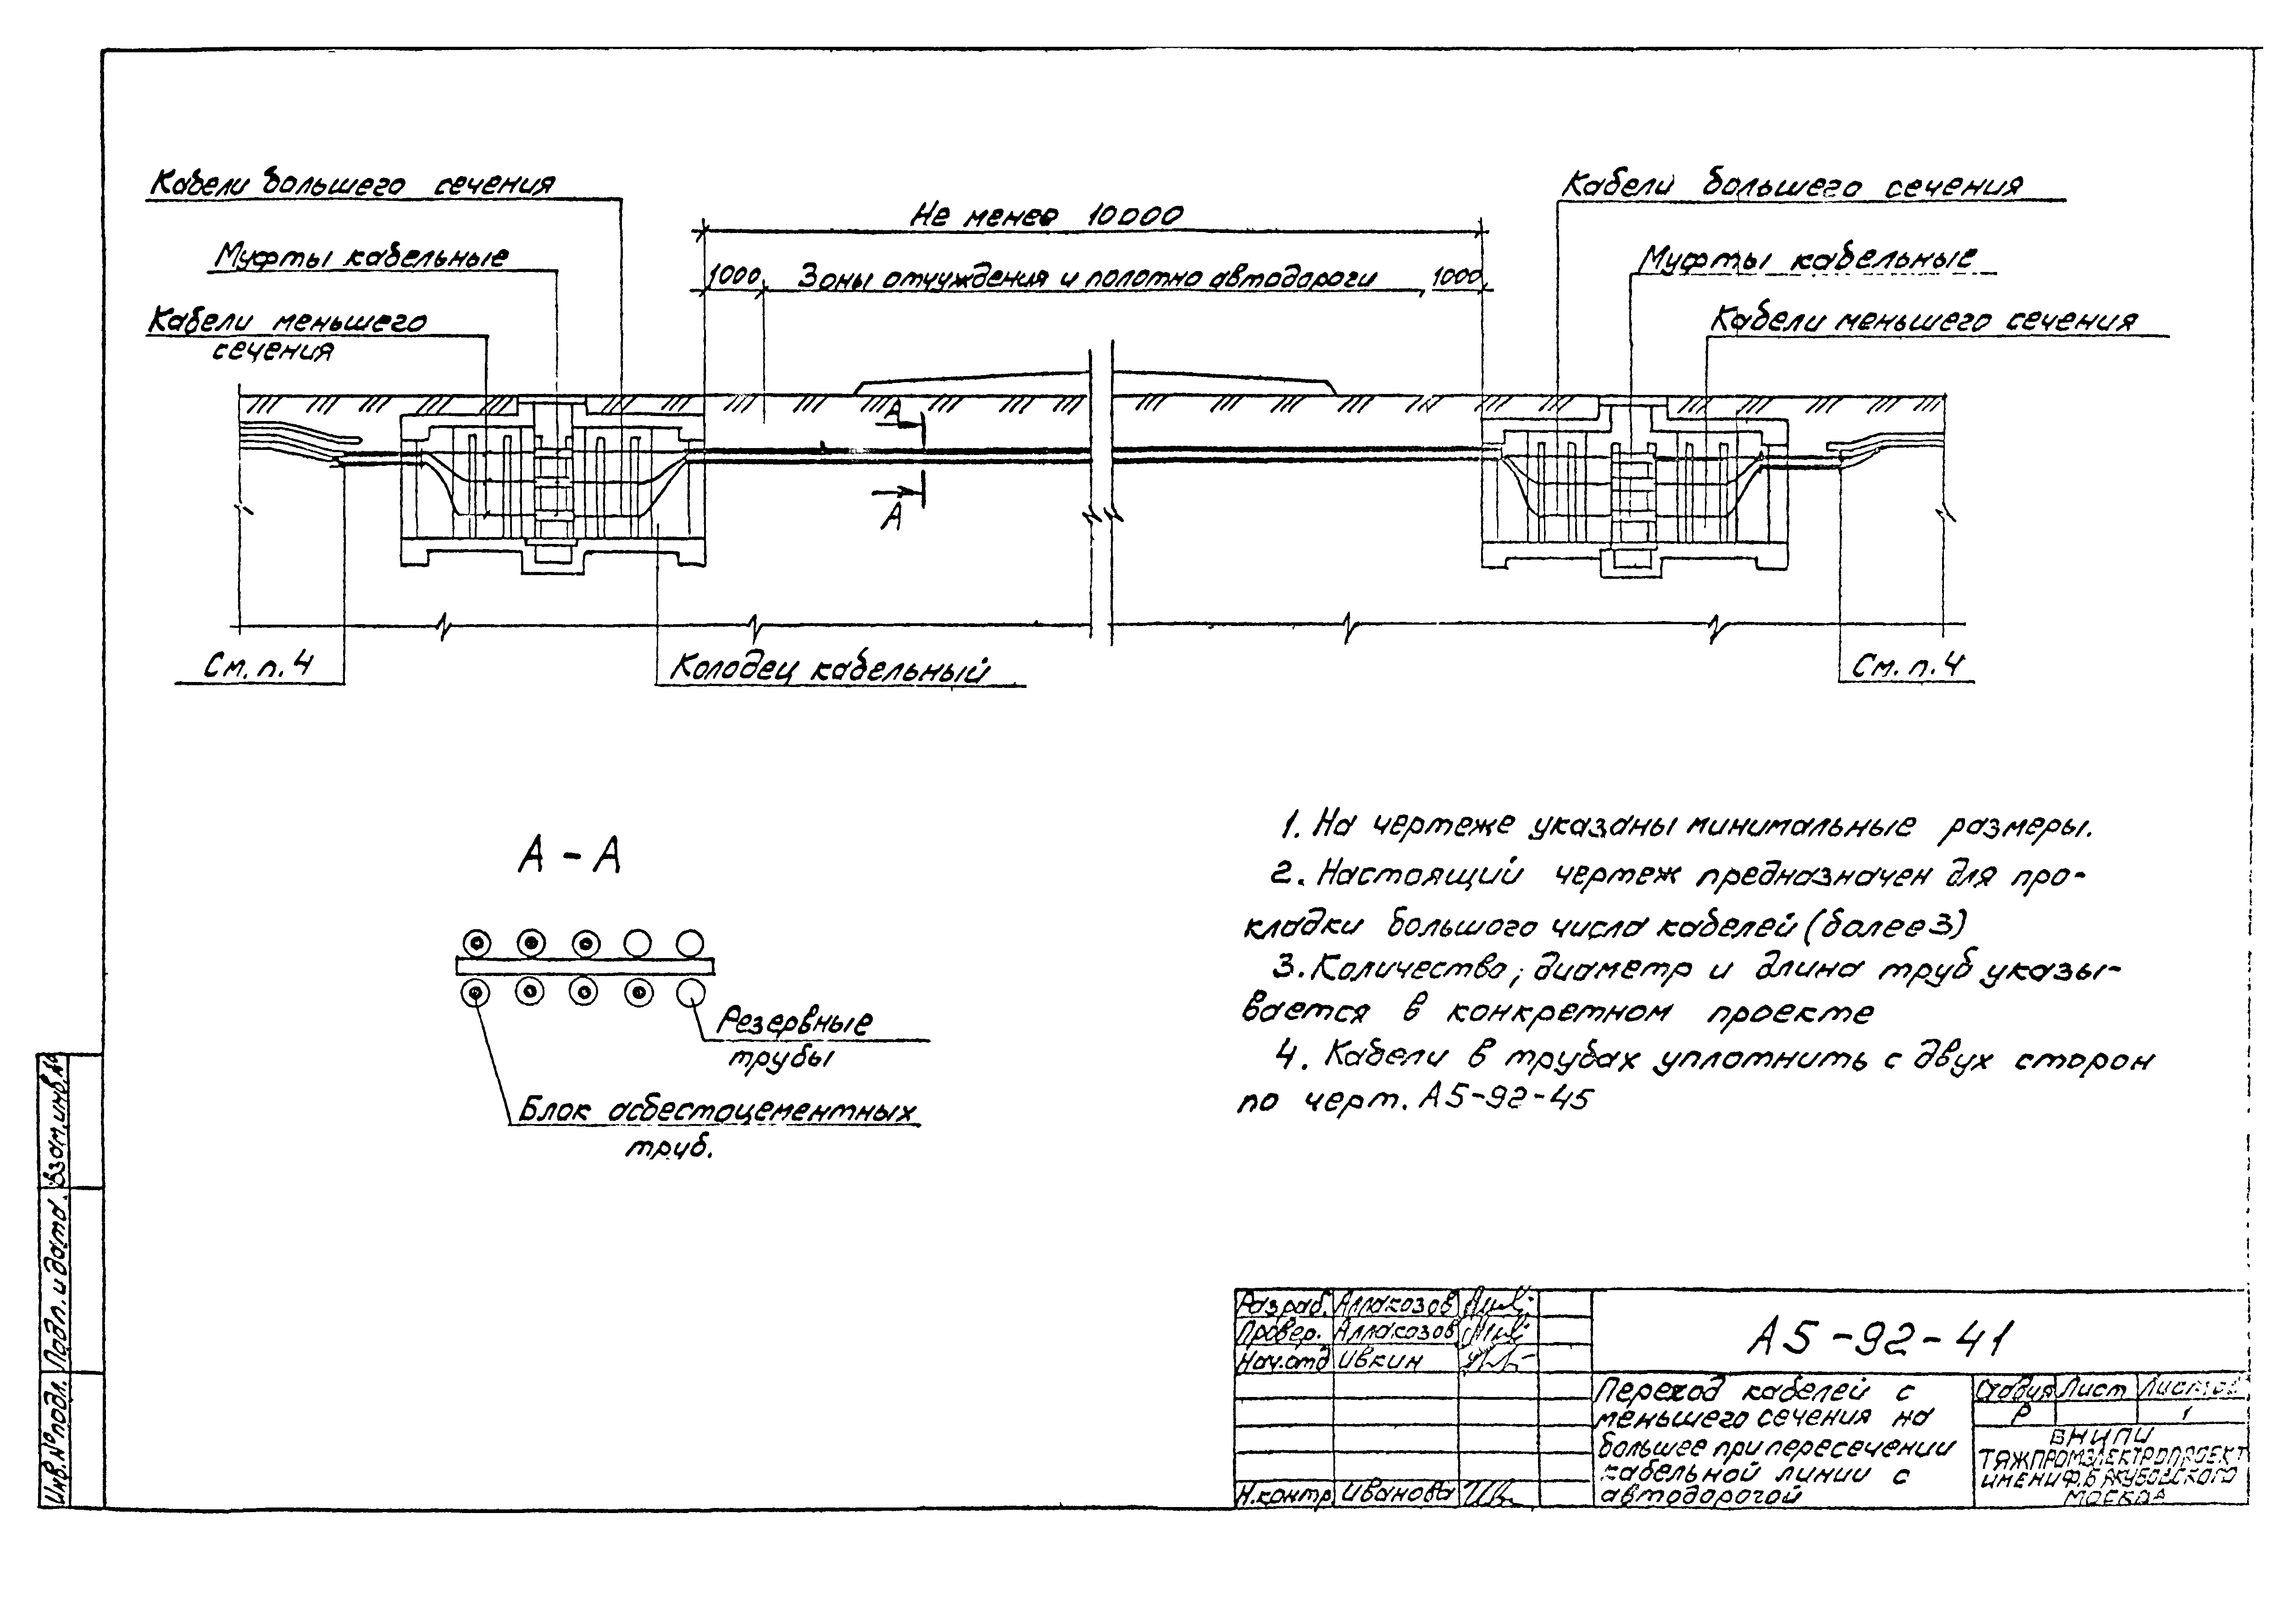 Кабели большего сечения
Муфты кабельные
Кабели меньшего
сечения
Не менее 10000
1000 Зоны отчуждения и полотно автодороги 1000
Кабели большего сечения
Муфты кабельные
Кабели меньшего сечения
А
А
См. п. 4
Колодец кабельный
См. п. 4
А - А
Резервные
трубы
Блок асбестоцементных
труб.
1. На чертеже указаны минимальные размеры.
2. Настоящий чертеж предназначен для про-
кладки большого числа кабелей (более 3)
3. Количество, диаметр и длина труб указы-
вается в конкретном проекте
4. Кабели в трубах уплотнить с двух сторон
по черт. А5-92-45
Взам. инв. №
Подп. и дата
Инв. № подл.
Разраб. Аллакозов
Провер. Аллакозов
Нач. отд Ивкин
Н. контр. Иванова
А5-92-41
Переход кабелей с
меньшего сечения на
большее при пересечении
кабельной линии с
автодорогой
Стадия Лист Листов
Р 1
ВНИПИ
ТЯЖПРОМЭЛЕКТРОПРОЕКТ
ИМЕНИ Ф.Б. ЯКУБОВСКОГО
МОСКВА